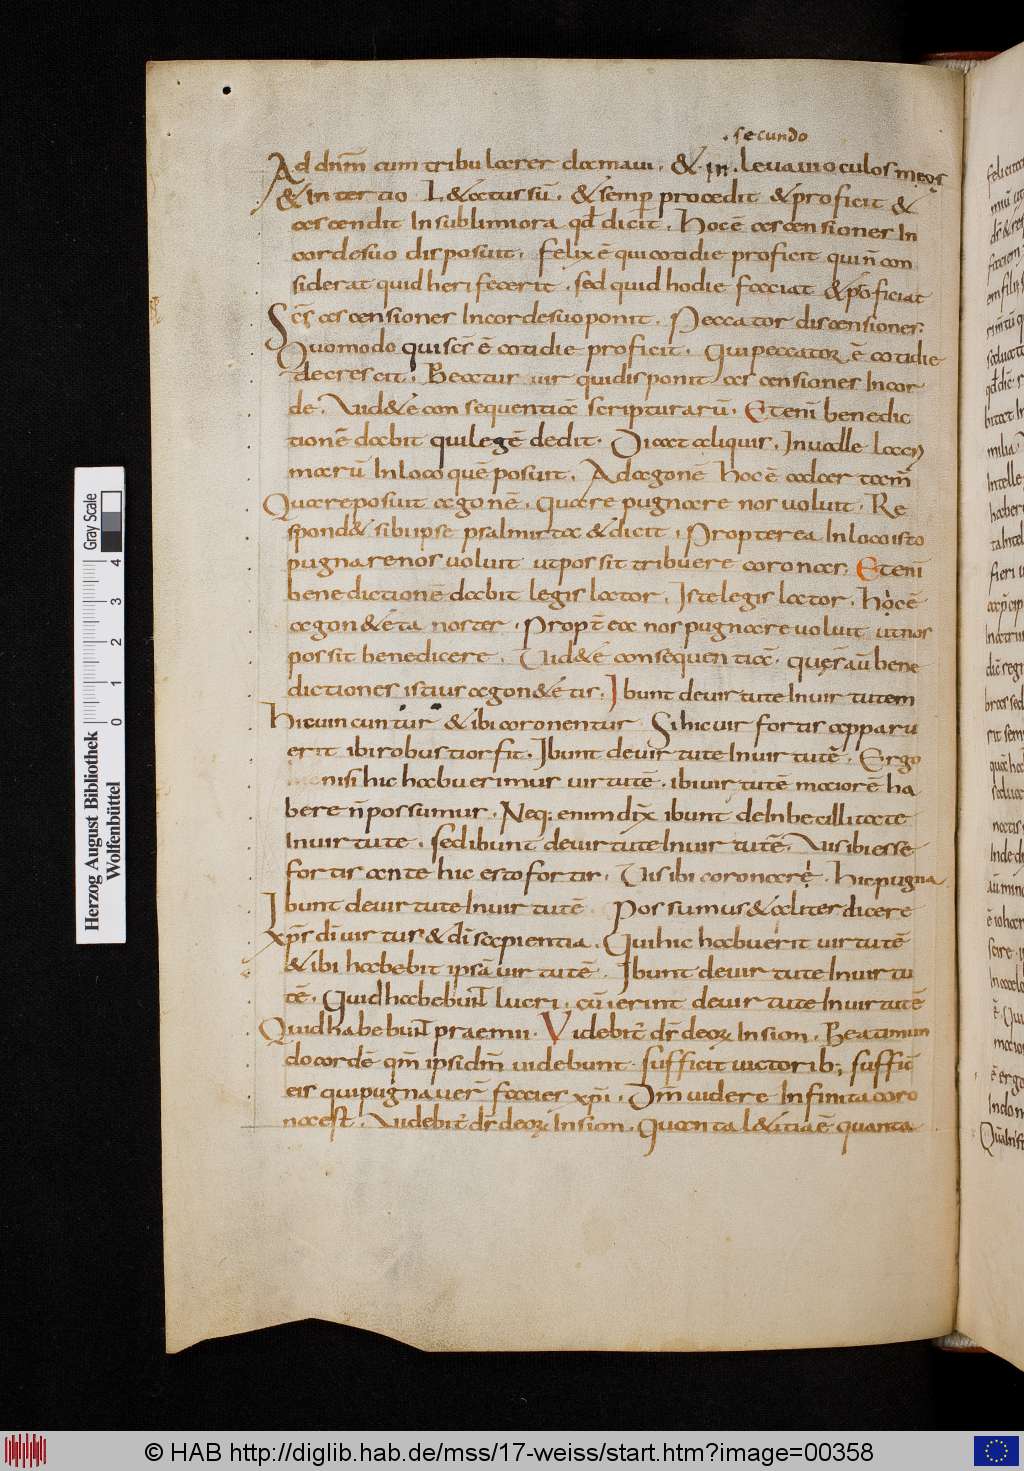 secundo
Ad dn̄m cum tribularer clamavi. & in. levavi oculos meos
& in tertio Lætatus sū. & semp procedit & proficit &
ascendit In sublimiora qd̄ dicit. Hoc ē ascensiones In
corde suo disposuit. felix ē qui cotidie proficit qui n̄ con
siderat quid heri fecerit. sed quid hodie faciat & proficiat
Sc̄s ascensiones In corde suo ponit. Peccator discensiones.
Quomodo qui sc̄s ē cotidie proficit. Qui peccator ē cotidie
decrescit. Beatus vir qui disponit ascensiones In cor
de. Vid&e consequentiā scripturarū. Eteni benedic
tionē dabit qui legē dedit. Dicat aliquis. In valle lacri
marū In loco quē posuit. Ad agonē hoc ē ad certam̄
Quare posuit agonē. Quare pugnare nos voluit. Re
spond& sibi ipse psalmista & dicit. Propterea In loco isto
pugnare nos voluit ut possit tribuere coronas. Eteni
benedictionē dabit legis lator. Iste legis lator. Hoc ē
agon&eta noster. Propt̄ea nos pugnare voluit ut nos
possit benedicere. Vid&e consequentiā. que s̄ aū bene
dictiones istius agon&etis. Ibunt de virtute In virtutem
Hic vincuntur & ibi coronentur Si hic vir fortis apparu
erit ibi robustior fit. Ibunt de virtute In virtutē. Ergo
nisi hic habuerimus virtutē. ibi virtutē maiorē ha
bere n̄ possumus. Neq; enim dix̄ ibunt de Inbecillitate
In virtute. sed ibunt de virtute In virtutē. Vis ibi esse
fortis ante hic esto fortis. Vis ibi coronare. hic pugna
Ibunt de virtute In virtutē Possumus & aliter dicere
xp̄s dī virtus & dī sapientia. Qui hic habuerit virtutē
& ibi habebit ipsā virtutē. Ibunt de virtute In virtu
tē. Quid habebunt lucri. cū ierint de virtute In virtutē
Quid habebunt praemii. Videbit̄ ds̄ deoꝝ In sion. Beati mun
do cordē qm̄ ipsi dm̄ videbunt. sufficit victorib;, suffic̄
eis qui pugnaver̄ facies xp̄i. Dm̄ videre Infinita coro
na est. Videbit̄ ds̄ deoꝝ In sion. Quanta lætitia ē quanta
Herzog August Bibliothek
Wolfenbüttel
Gray Scale
0 1 2 3 4
© HAB http://diglib.hab.de/mss/17-weiss/start.htm?image=00358